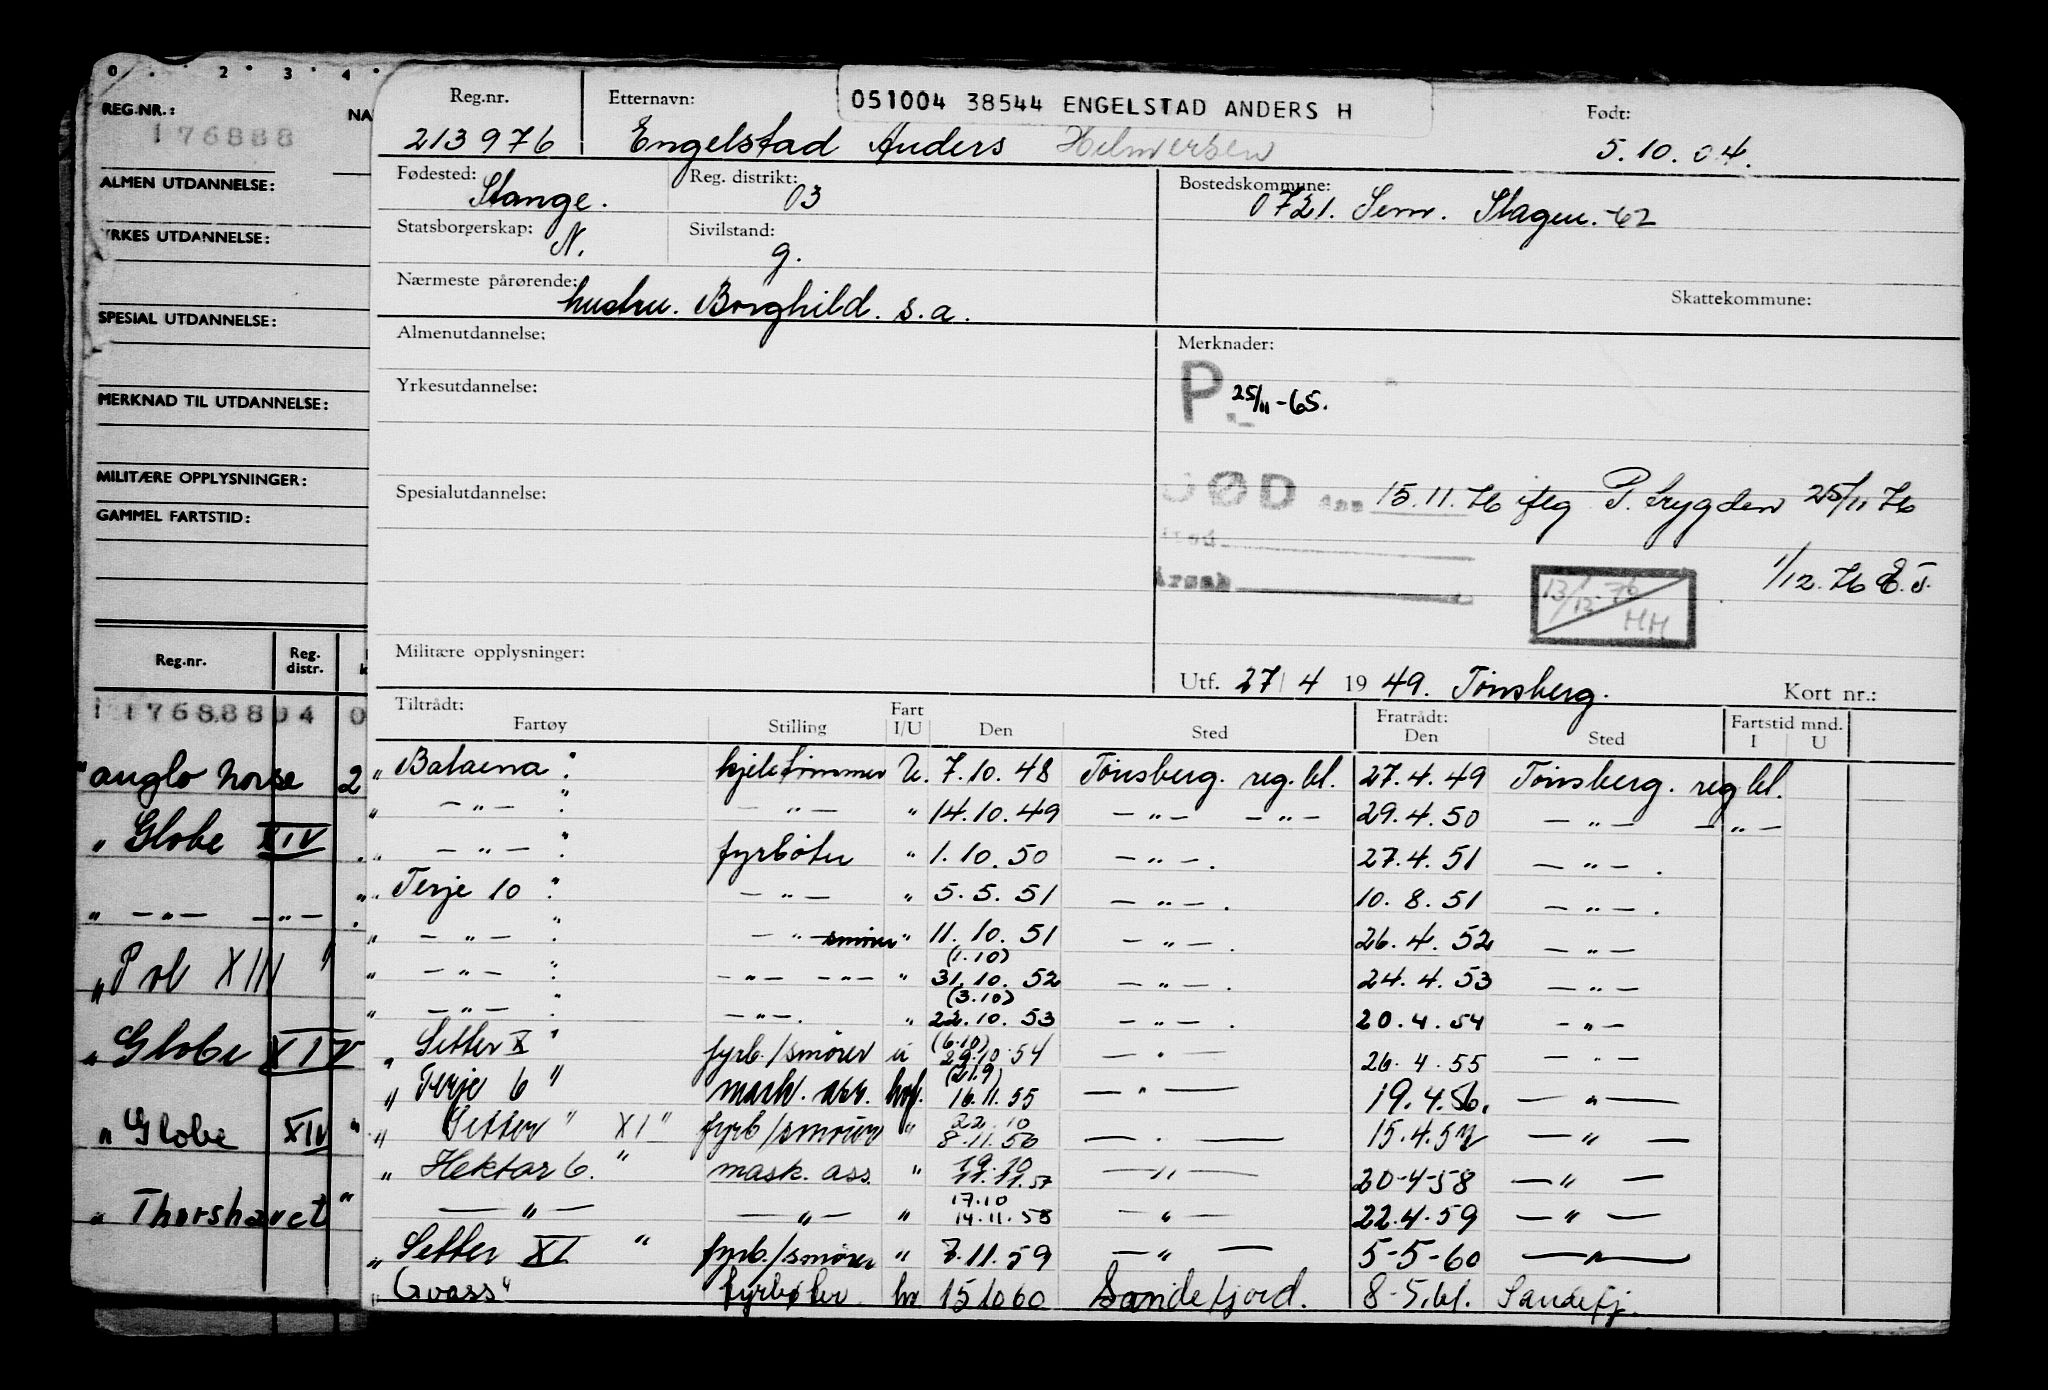 0 . 2 . 3 . 4 .
REG.NR.: NA
176888
ALMEN UTDANNELSE:
YRKES UTDANNELSE:
SPESIAL UTDANNELSE:
MERKNAD TIL UTDANNELSE:
MILITÆRE OPPLYSNINGER:
GAMMEL FARTSTID:
Reg.nr. Reg. distr.
1176888 04 0
" anglo norse 2
" Globe XIV
" — " — — " —
" Pol XIII "
" Globe XIV
" Globe XIV "
" Thorshavet "
051004 38544 ENGELSTAD ANDERS H
Reg.nr. Etternavn: Født:
213976 Engelstad Anders Helmersen 5.10.04.
Fødested: Stange. Reg. distrikt: 03 Bostedskommune: 0721. Sem. Slagen. -62
Statsborgerskap: N. Sivilstand: g.
Nærmeste pårørende: hustru. Borghild. s.a. Skattekommune:
Almenutdannelse: Merknader:
Yrkesutdannelse: P. 25/11-65.
Spesialutdannelse: DØD den 15.11.76 iflg P. trygden 25/11 76
Sted
Årsak 1/12.76 E.T.
13/12-76 HH
Militære opplysninger:
Utf. 27/4 1949. Tønsberg. Kort nr.:
Tiltrådt: Fart Fratrådt: Fartstid mnd.
Fartøy Stilling I/U Den Sted Den Sted I U
" Balaena " kjeletrimmer U. 7.10.48 Tønsberg. reg.bl. 27.4.49 Tønsberg. reg bl.
" — " — " — " — " 14.10.49 — " — — " — 29.4.50 — " — — " —
" — " — " fyrbøter " 1.10.50 — " — . 27.4.51 — " — .
" Terje 10 " — " — " 5.5.51 — " — . 10.8.51 — " — .
" — " — " — " — smører " 11.10.51 — " — . 26.4.52 — " —
" — " — " — " — — " — " (1.10) 31.10.52 — " — . 24.4.53 — " —
" — " — " — " — . " (3.10) 22.10.53 — " — . 20.4.54 — " —
" Setter X " fyrb./smører u (6.10) 29.10.54 — " — 26.4.55 — " —
" Terje 6 " mask. ass. hvf. (21.9) 16.11.55 — " — 19.4.56. — " —
" Setter " XI " fyrb/smører " 22.10 8.11.56 — " — 15.4.57 — " —
" Hektor 6. " mask. ass. " 19.10 11.11.57 — " — 20-4-58 — " —
— " — — " — " 17.10 14.11.58 — " — 22.4.59 — " —
" Setter XI " fyrb./smører " 7.11.59 — " — 5-5-60 — " —
" Gvass" fyrbøter hv 15 10 60 Sandefjord. 8-5.61. Sandefj.